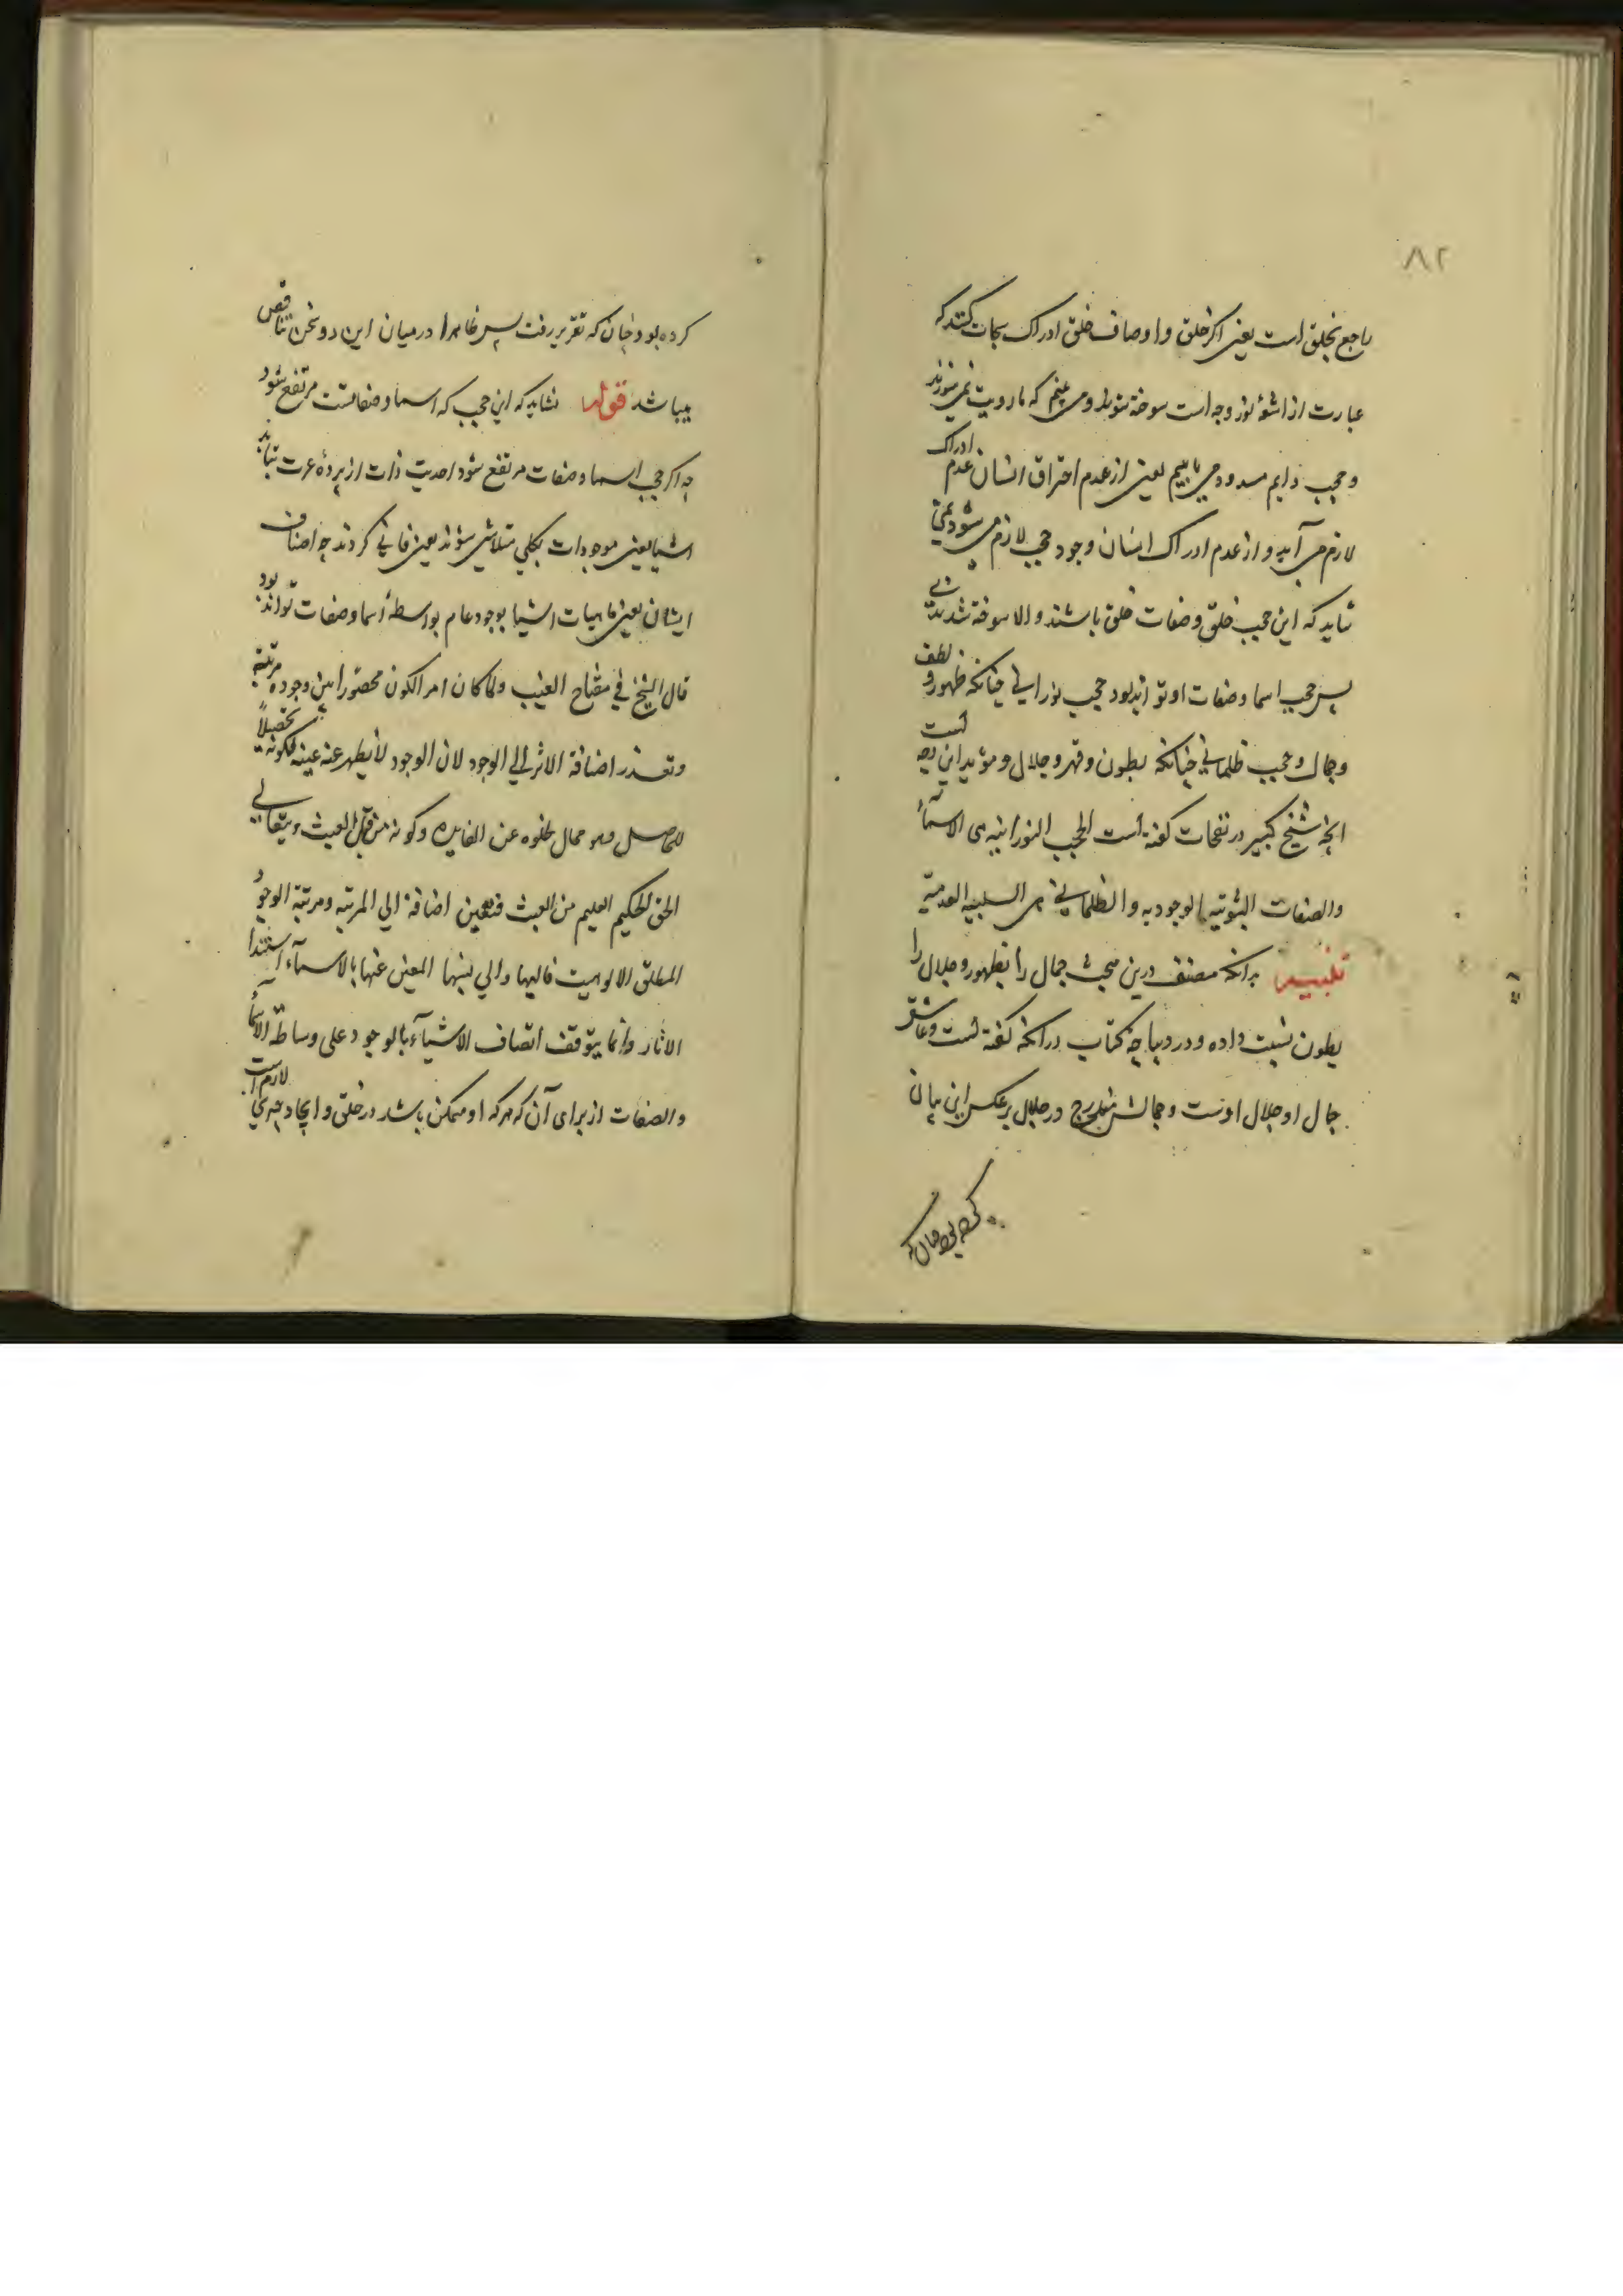 ۸۲
راجع بخلق است یعنی اکر خلق و اوصاف خلق ادراک سبحات کنند که
عبارت از اشعهٔ نور وجه است سوخته شوند و می بینم که با رویت نمی سوزند
و حجب دایم مسدود می یابیم یعنی از عدم احتراق انسان عدم ادراک
لازم می آید و از عدم ادراک انسان وجود حجب لازم می شود یعنی
شاید که این حجب خلق و صفات خلق باشند و الا سوخته شدندی
پس حجب اسما و صفات او تواند بود حجب نورانی چنانکه ظهور و لطف
و جمال و حجب ظلمانی چنانکه بطون و قهر و جلال و مؤید این وجه است
انچه شیخ کبیر در نفحات کفته است الحجب النورانیه هی الاسمآء
والصفات الثبوتیه الوجودیه والظلمانی هی السلبیه العدمیة
تنبیه بدانکه مصنف درین مبحث جمال را بظهور و جلال را
بطون نسبت داده و در دیباچه کتاب درانکه کفته است و عاشق
جمال او جلال اوست و جمالش مندرج در جلال بر عکس این بیان
کرده بود چنان که
کرده بود چنان که تقریر رفت پس ظاهرا درمیان این دو سخن تناقض
میباشد قوله نشاید که این حجب که اسما و صفاتست مرتفع شود
چه اکر حجب اسما و صفات مرتفع شود احدیت ذات از پردهٔ عزت بتابد
اشیا یعنی موجودات بکلی متلاشی شوند یعنی فانی کردند چه اتصاف
ایشان یعنی ماهیات اشیا بوجود عام بواسطهٔ اسما و صفات تواند بود
قال الشیخ فی مفتاح الغیب ولما کان امر الکون محصورا بین وجود و مرتبة
وتعذر اضافة الاثر الی الوجود لان الوجود لا یظهر عنه عینه لکونه تحصیلاً
للحاصل وهو محال لخلوه عن الفایده وکونه من قبیل العبث ویتعالی
الحق الحکیم العلیم من العبث فتعین اضافة الی المرتبه ومرتبة الوجود
المطلق الالوهیت فالیها والی نسبها المعبر عنها بالاسمآء استندا
الاثار وانما یتوقف اتصاف الاشیآء بالوجود علی وساطة الاسمآء
والصفات از برای آن که هرکه او ممکن باشد در خلق و ایجاد چیزی لازم است